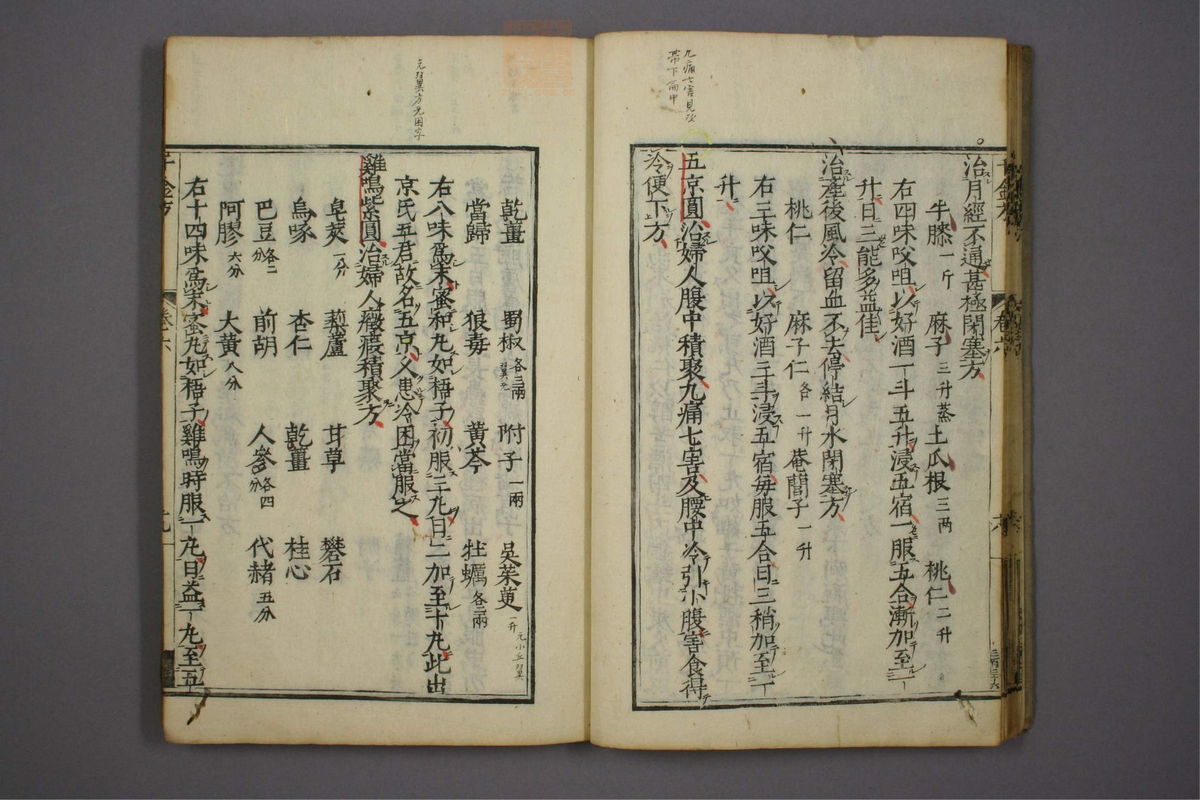 治月經不通甚極閉塞方
牛膝一斤 麻子三升蒸 土瓜根三两 桃仁二升
右四味㕮咀以好酒一斗五升浸五宿一服五合漸加至一
升日三能多益佳
治產後風冷留血不去停結月水閉塞方
桃仁 麻子仁各一升 菴䕡子一升
右三味㕮咀以好酒三斗浸五宿每服五合日三稍加至一
升
五京圓治婦人腹中積聚九痛七害及腰中冷引小腹害食得
冷便下方
乾薑 蜀椒各三兩 附子一兩 吳茱萸一升
當歸 狼毒 黃芩 牡蠣各二兩
右八味爲末蜜和丸如梧子初服三丸日二加至十丸此出
京氏五君故名五京久患冷困當服之
雞鳴紫圓治婦人癥瘕積聚方
皂莢一分 藜蘆 甘草 礬石
烏喙 杏仁 乾薑 桂心
巴豆各二分 前胡 人參各四分 代赭五分
阿膠六分 大黃八分
右十四味爲末蜜丸如梧子雞鳴時服一丸日益一丸至五